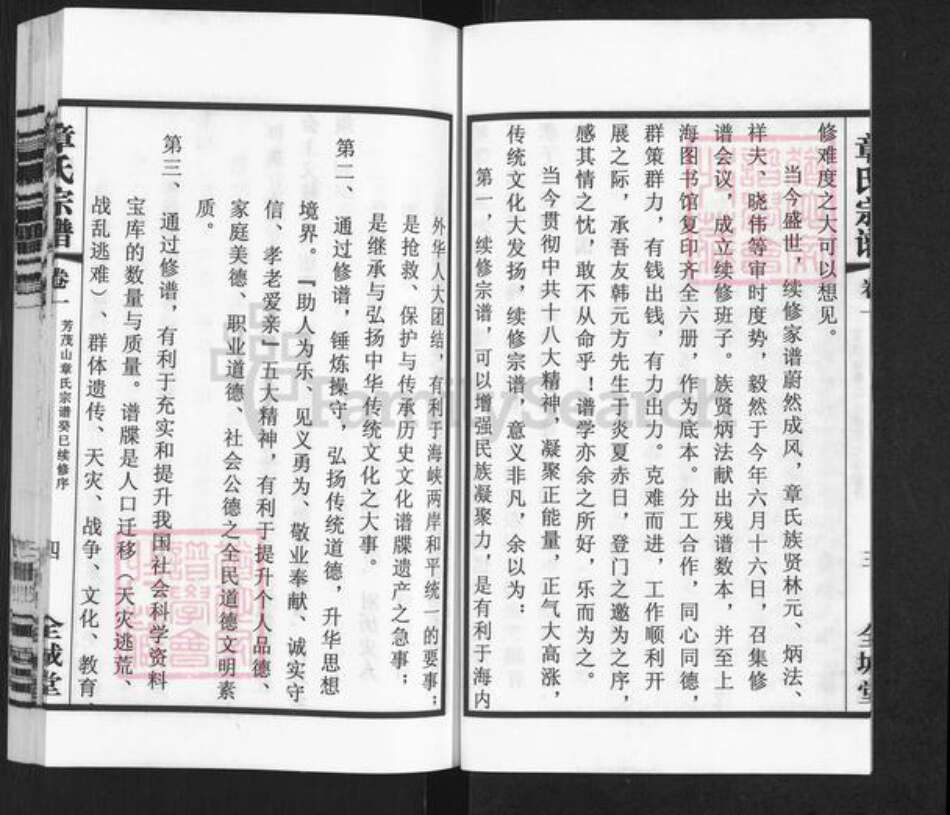 章氏宗谱
卷一
三
全城堂
修难度之大可以想见。
当今盛世，续修家谱蔚然成风，章氏族贤林元、炳法、
祥夫、晓伟等审时度势，毅然于今年六月十六日，召集修
谱会议，成立续修班子。族贤炳法献出残谱数本，并至上
海图书馆复印齐全六册，作为底本。分工合作，同心同德，
群策群力，有钱出钱，有力出力。克难而进，工作顺利开
展之际，承吾友韩元方先生于炎夏赤日，登门之邀为之序，
感其情之忱，敢不从命乎！谱学亦余之所好，乐而为之。
当今贯彻中共十八大精神，凝聚正能量，正气大高涨，
传统文化大发扬，续修宗谱，意义非凡，余以为：
第一，续修宗谱，可以增强民族凝聚力，是有利于海内
外华人大团结，有利于海峡两岸和平统一的要事；
是抢救、保护与传承历史文化谱牒遗产之急事；
是继承与弘扬中华传统文化之大事。
第二、通过修谱，锤炼操守，弘扬传统道德，升华思想
境界。『助人为乐、见义勇为、敬业奉献、诚实守
信、孝老爱亲』五大精神，有利于提升个人品德、
家庭美德、职业道德、社会公德之全民道德文明素
质。
第三、通过修谱，有利于充实和提升我国社会科学资料
宝库的数量与质量。谱牒是人口迁移（天灾逃荒、
战乱逃难）、群体遗传、天灾、战争、文化、教育、
章氏宗谱
卷一
芳茂山章氏宗谱癸巳续修序
四
全城堂
FamilySearch